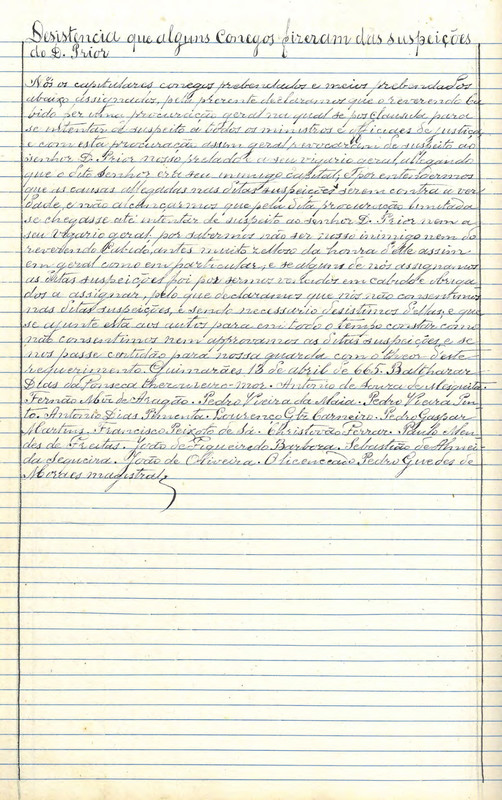 Desistencia que alguns conegos fizeram das suspeições
do D. Prior
Nós os capitulares conegos prebendados e meios prebandados
abaixo assignados, pelo prezente declaramos que o reverendo Ca-
bido per uma procuração geral na qual se pos clausula para
se intentar de suspeito a todos os ministros e officiaes de justiça
e com esta procuração assim geral revocaram de suspeito ao
senhor D. Prior nosso prelado e a seu vigario geral, allegando
que o dito senhor era seu inimigo capital; E por entendermos
que as causas allegadas nas ditas suspeições serem contra a ver-
dade, e não alcançarmos que pela dita procuração limitada
se chegasse até intentar de suspeito ao senhor D. Prior nem a
seu Vigario geral, por sabermos não ser nosso inimigo nem do
reverendo Cabido, antes muito zelloso da honra d'elle assim
em geral como em particular, e se alguns de nós assignamos
as ditas suspeições foi por sermos vencidos em cabido e obriga-
dos a assignar, pelo que declaramos que nós não consentimos
nas ditas suspeições, e sendo necessario desistimos d'ellas, e que
se ajunte esta aos autos para em todo o tempo constar como
não consentimos nem approvamos as ditas suspeições, e se
nos passe certidão para nossa guarda com o theor d'este
requerimento. Guimarães 13 de abril de 665. Balthazar
Dias da Fonseca thezoureiro-mor. Antonio de Souza de Mesquita.
Fernão Miz de Aragão. Pedro Vieira da Maia. Pedro Vieira Pin-
to. Antonio Dias Pimenta. Lourenço Glz Carneiro. Pedro Gaspar
Martins. Francisco Peixoto de Sá. Christovão Ferraz. Paulo Men-
des de Freitas. João de Figueiredo Barboza. Sebastião de Almei-
da Sequeira. João de Oliveira. O licenceado Pedro Guedes de
Moraes magistral.